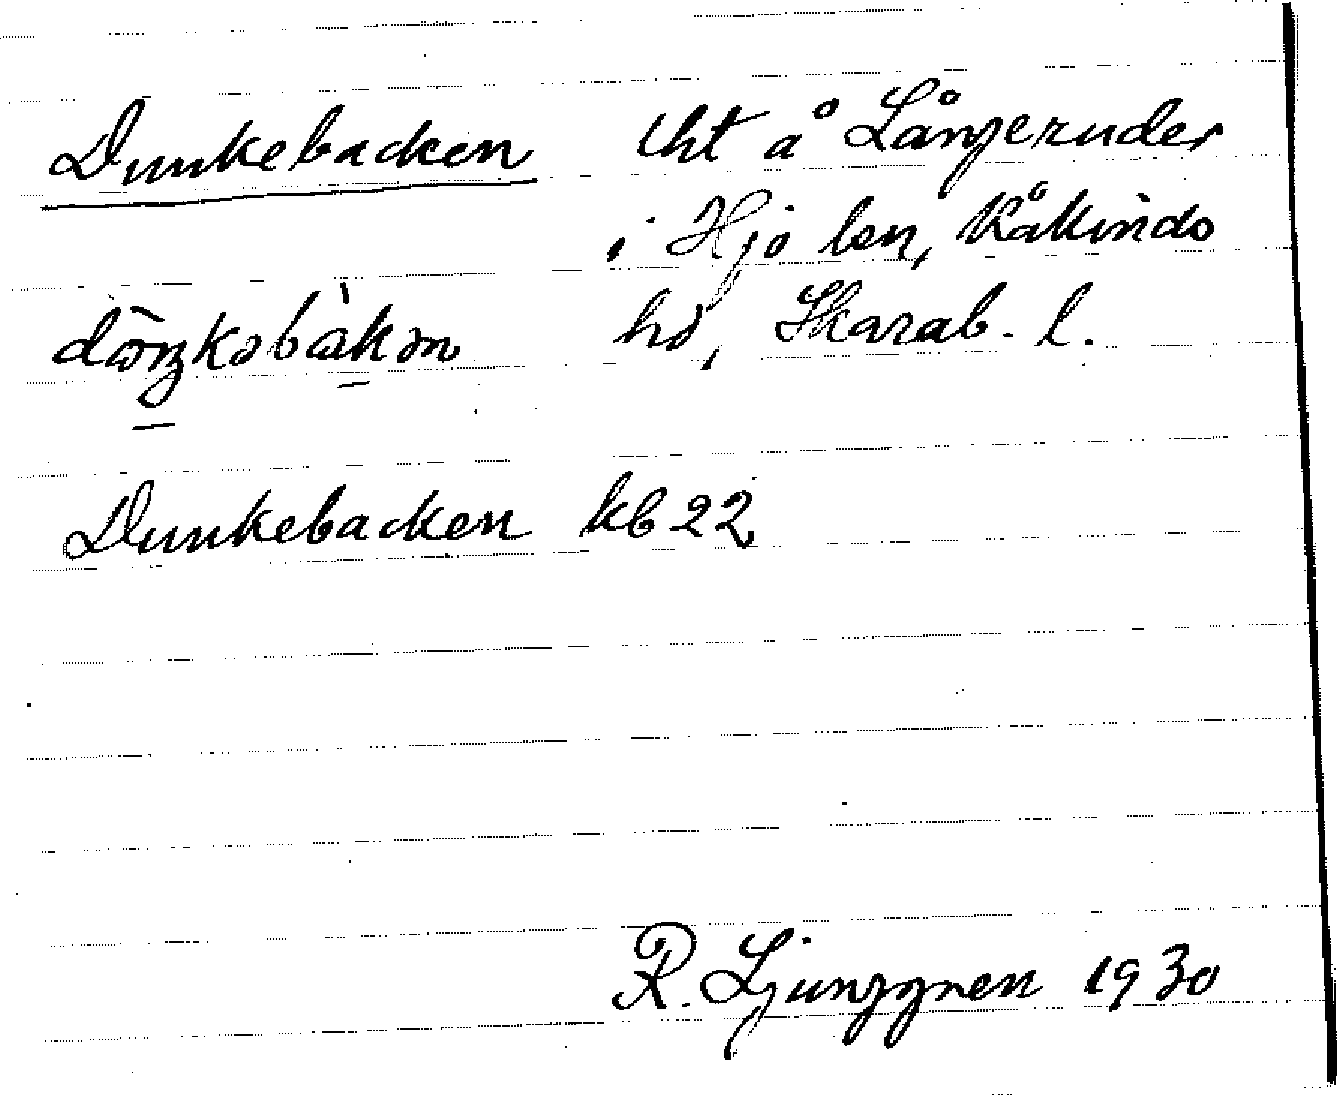 Dunkebacken tht å Långeruder
i Hjo lsn, Kåkinds
hd, Skarab. l.
Dunkebacken kb 22
R. Ljunggren 1930